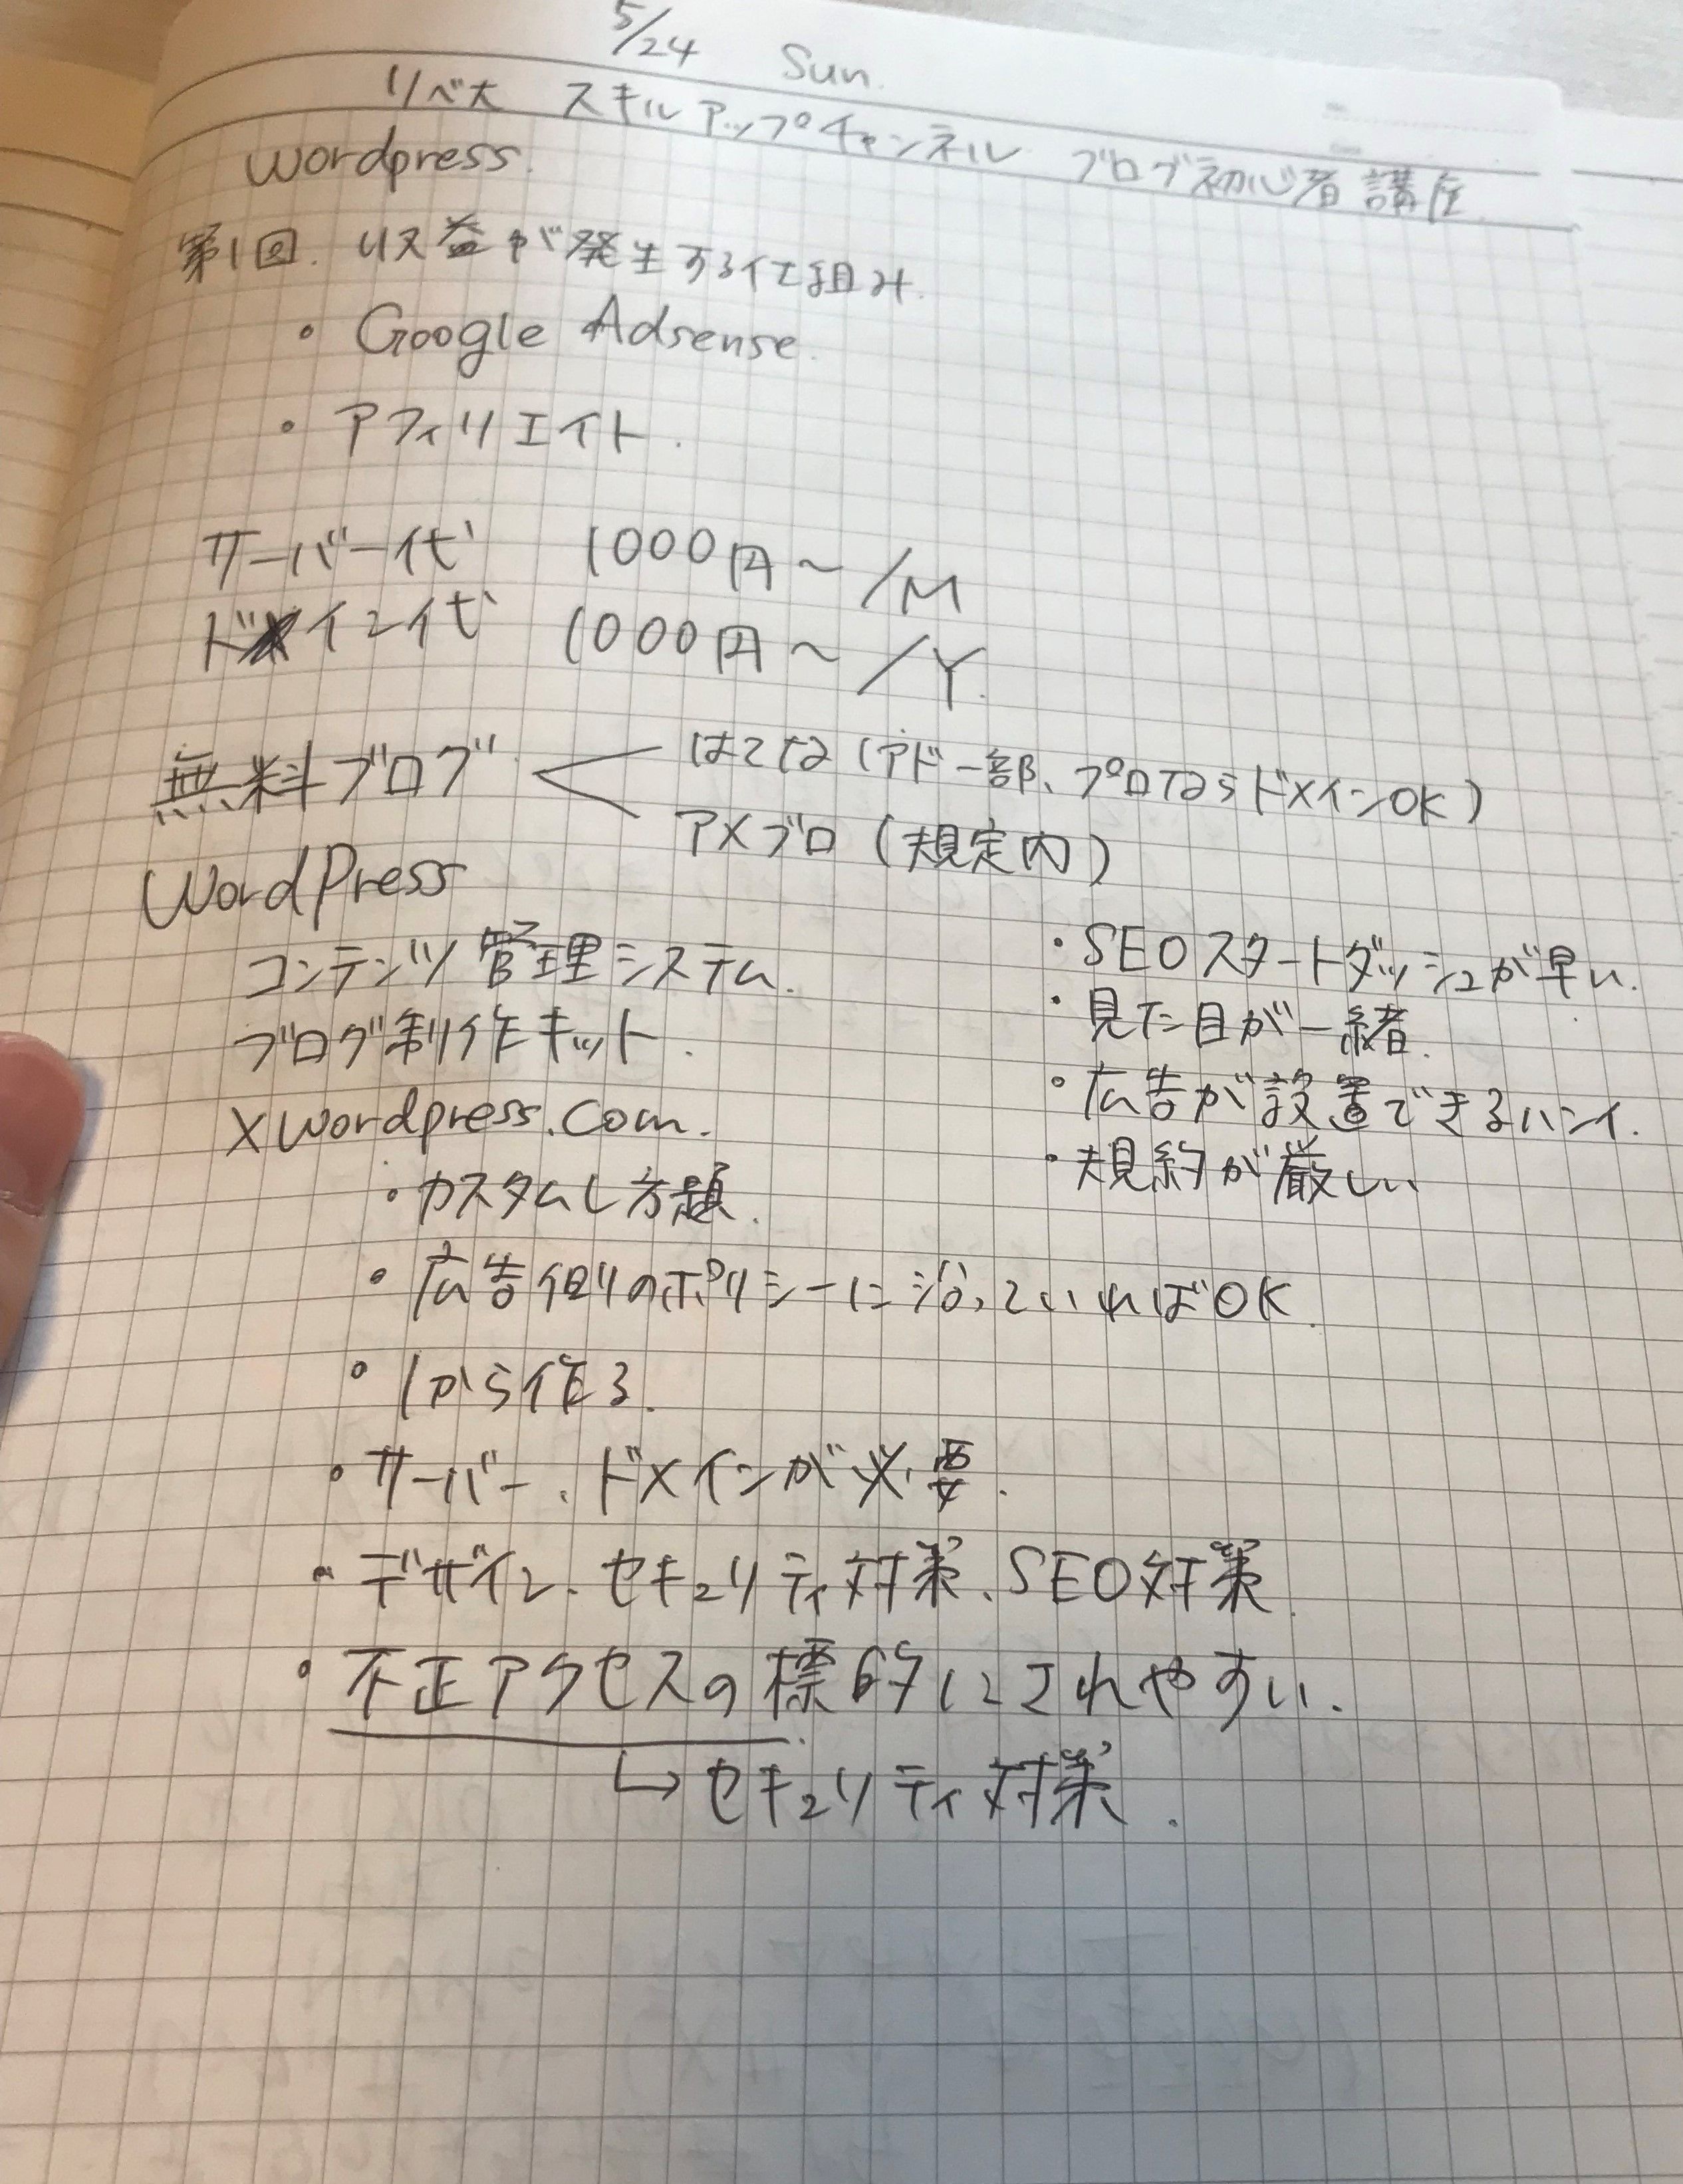 5/24 Sun.
リベ大 スキルアップチャンネル ブログ初心者講座
wordpress.
第1回. 収益が発生する仕組み.
・Google Adsense.
・アフィリエイト.
サーバー代 1000円〜/M
ドメイン代 1000円〜/Y.
無料ブログ はてな(アド一部、プロならドメインOK)
アメブロ(規定内)
WordPress
コンテンツ管理システム.
ブログ制作キット.
×wordpress.com.
・SEOスタートダッシュが早い.
・見た目が一緒.
・広告が設置できるハンイ.
・規約が厳しい
・カスタムし方題.
・広告但リのポリシーに沿っていればOK.
・1から作る.
・サーバー、ドメインが必要.
・デザイン、セキュリティ対策、SEO対策.
・不正アクセスの標的にされやすい.
↳セキュリティ対策.